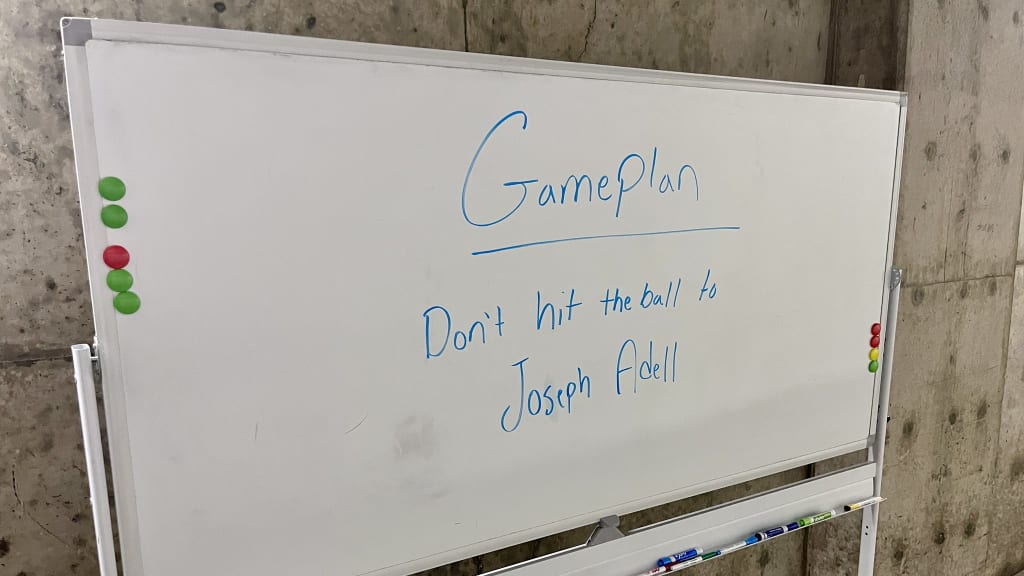 Gameplan
Don't hit the ball to
Joseph Adell